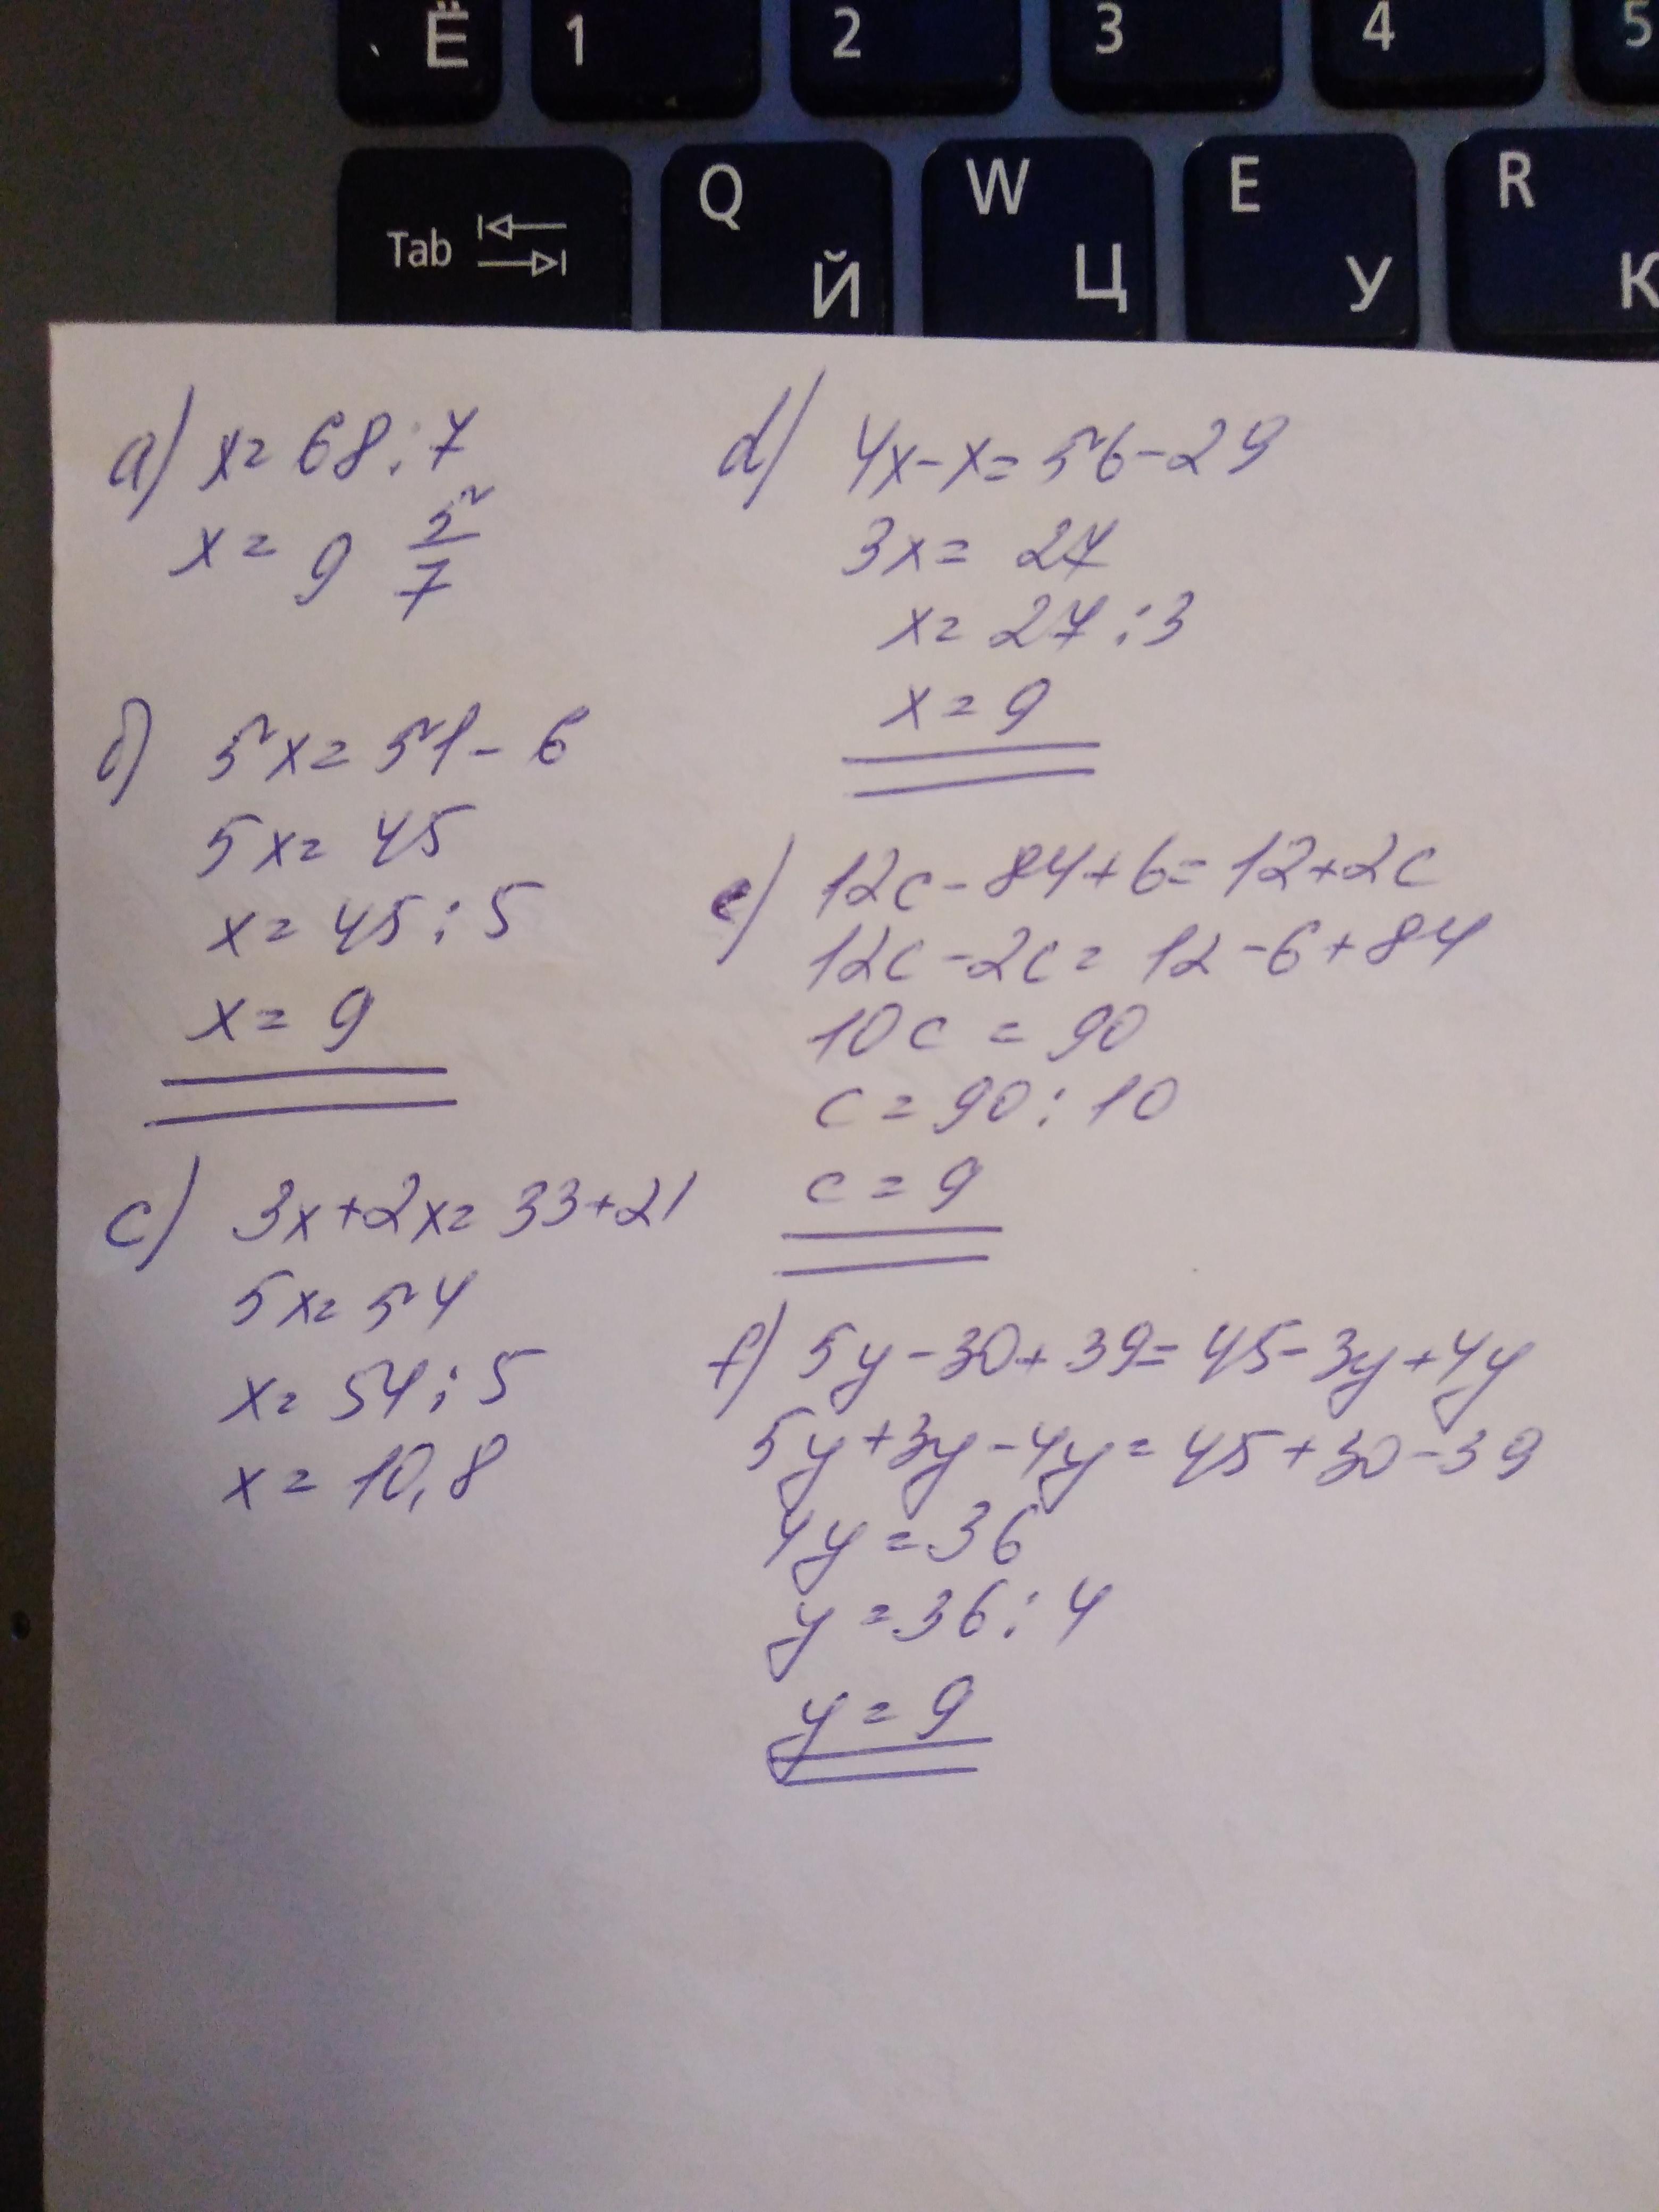 Ё 1 2 3 4 5
Tab Q Й W Ц E У R К
a) x = 68 : 7
x = 9 5/7
б) 5x = 51 - 6
5x = 45
x = 45 : 5
x = 9
c) 3x + 2x = 33 + 21
5x = 54
x = 54 : 5
x = 10,8
d) 4x - x = 56 - 29
3x = 27
x = 27 : 3
x = 9
e) 12c - 84 + 6 = 12 + 2c
12c - 2c = 12 - 6 + 84
10c = 90
c = 90 : 10
c = 9
f) 5y - 30 + 39 = 45 - 3y + 4y
5y + 3y - 4y = 45 + 30 - 39
4y = 36
y = 36 : 4
y = 9